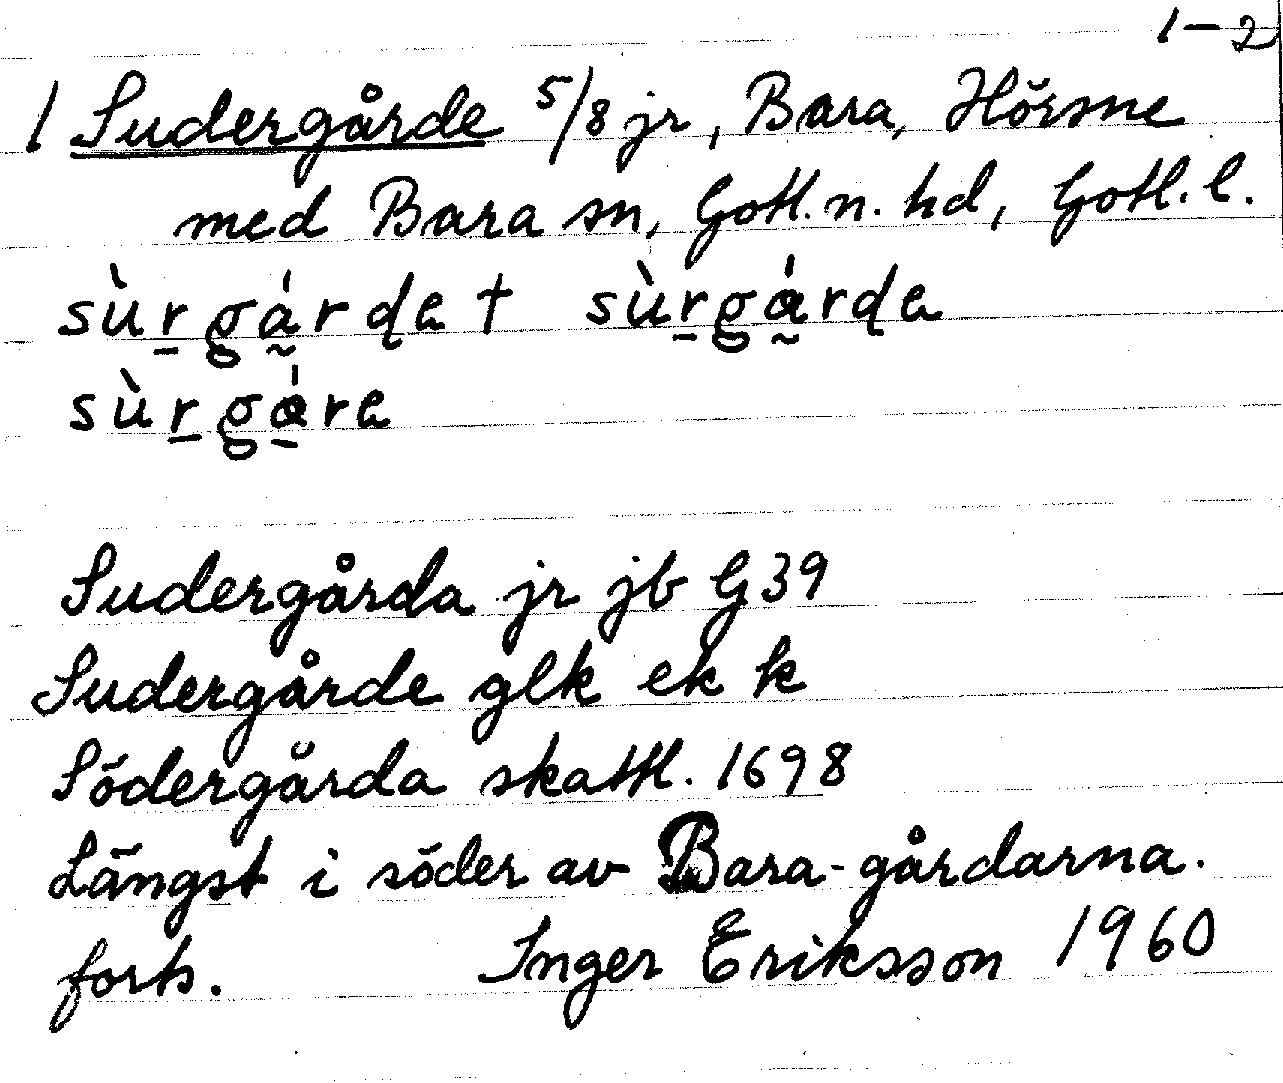 1-2
1 Sudergårde 5/8 jr, Bara, Hörsne
med Bara sn, Gotl. n. hd, Gotl. l.
sùrgárde † sùrgárde
sùrgáre
Sudergårda jr jb G39
Sudergårde glk ek k
Södergårda skattl. 1698
Längst i söder av Bara-gårdarna.
forts. Inger Eriksson 1960